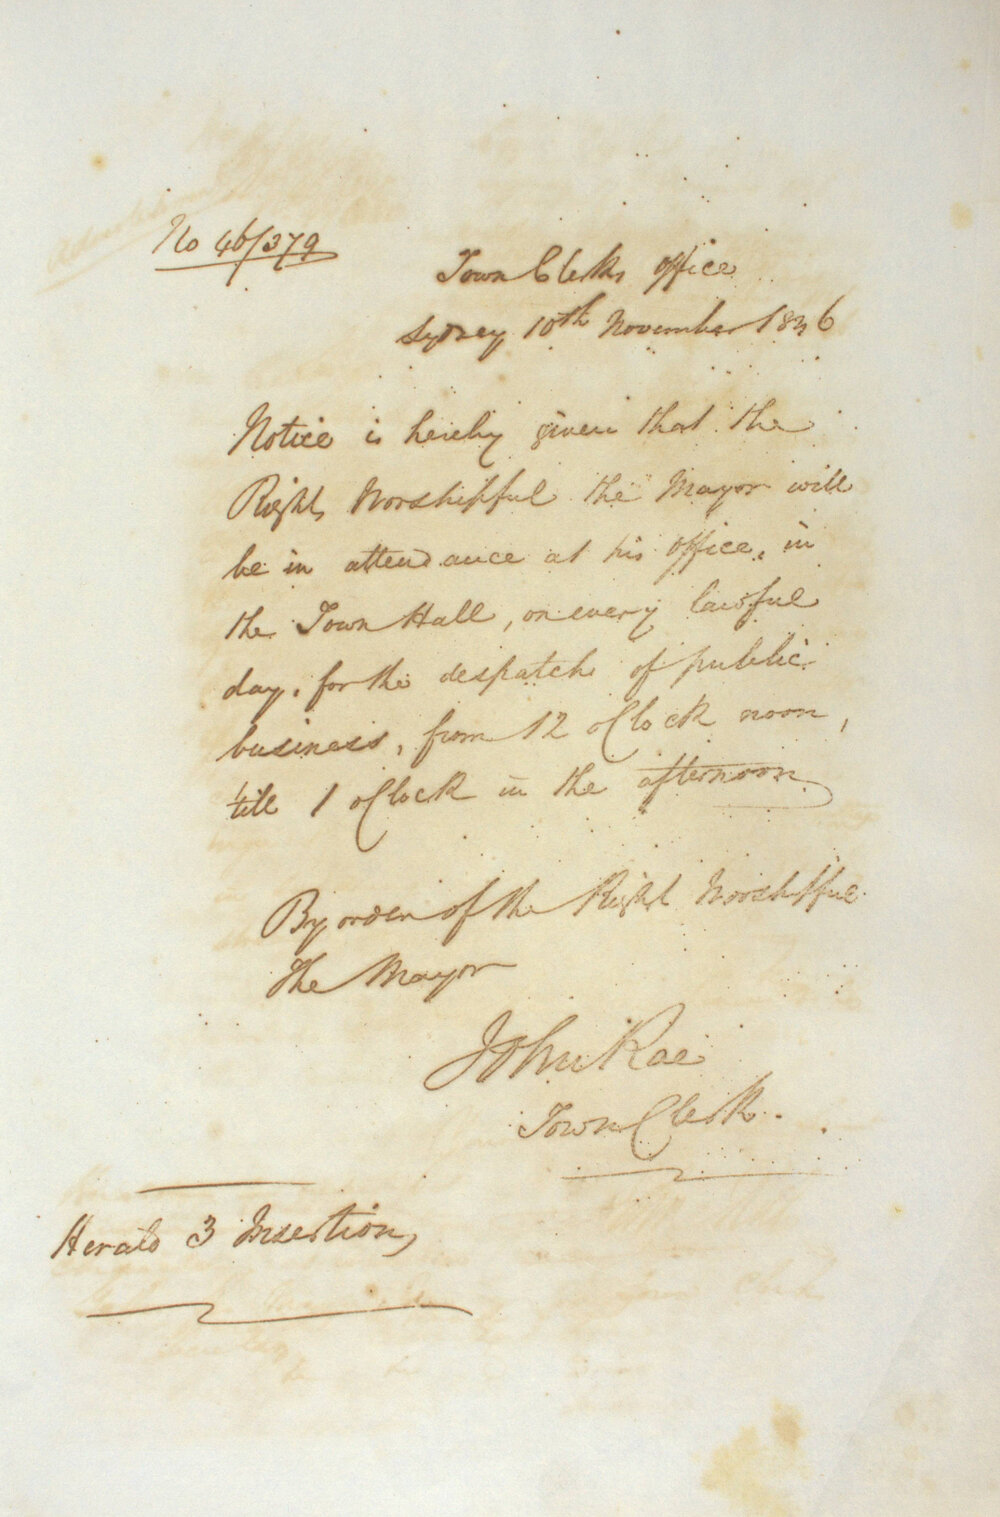 No 46/379
Town Clerks Office
Sydney 10th November 1846
Notice is hereby given that the
Right Worshipful the Mayor will
be in attendance at his office, in
the Town Hall, on every lawful
day, for the despatch of public
business, from 12 oClock noon,
till 1 oClock in the afternoon
By order of the Right Worshipful
The Mayor
John Rae
Town Clerk.
Herald 3 Insertions